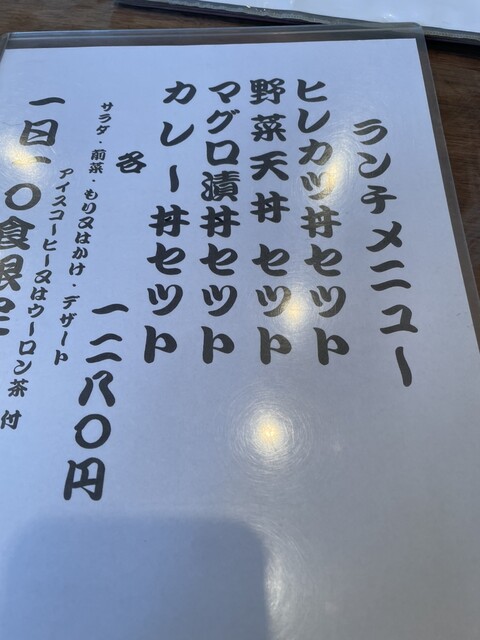 ランチメニュー
ヒレカツ丼セット
野菜天丼セット
マグロ漬丼セット
カレー丼セット
各 一二八〇円
サラダ・前菜・もり又はかけ・デザート
アイスコーヒー又はウーロン茶 付
一日一〇食限定